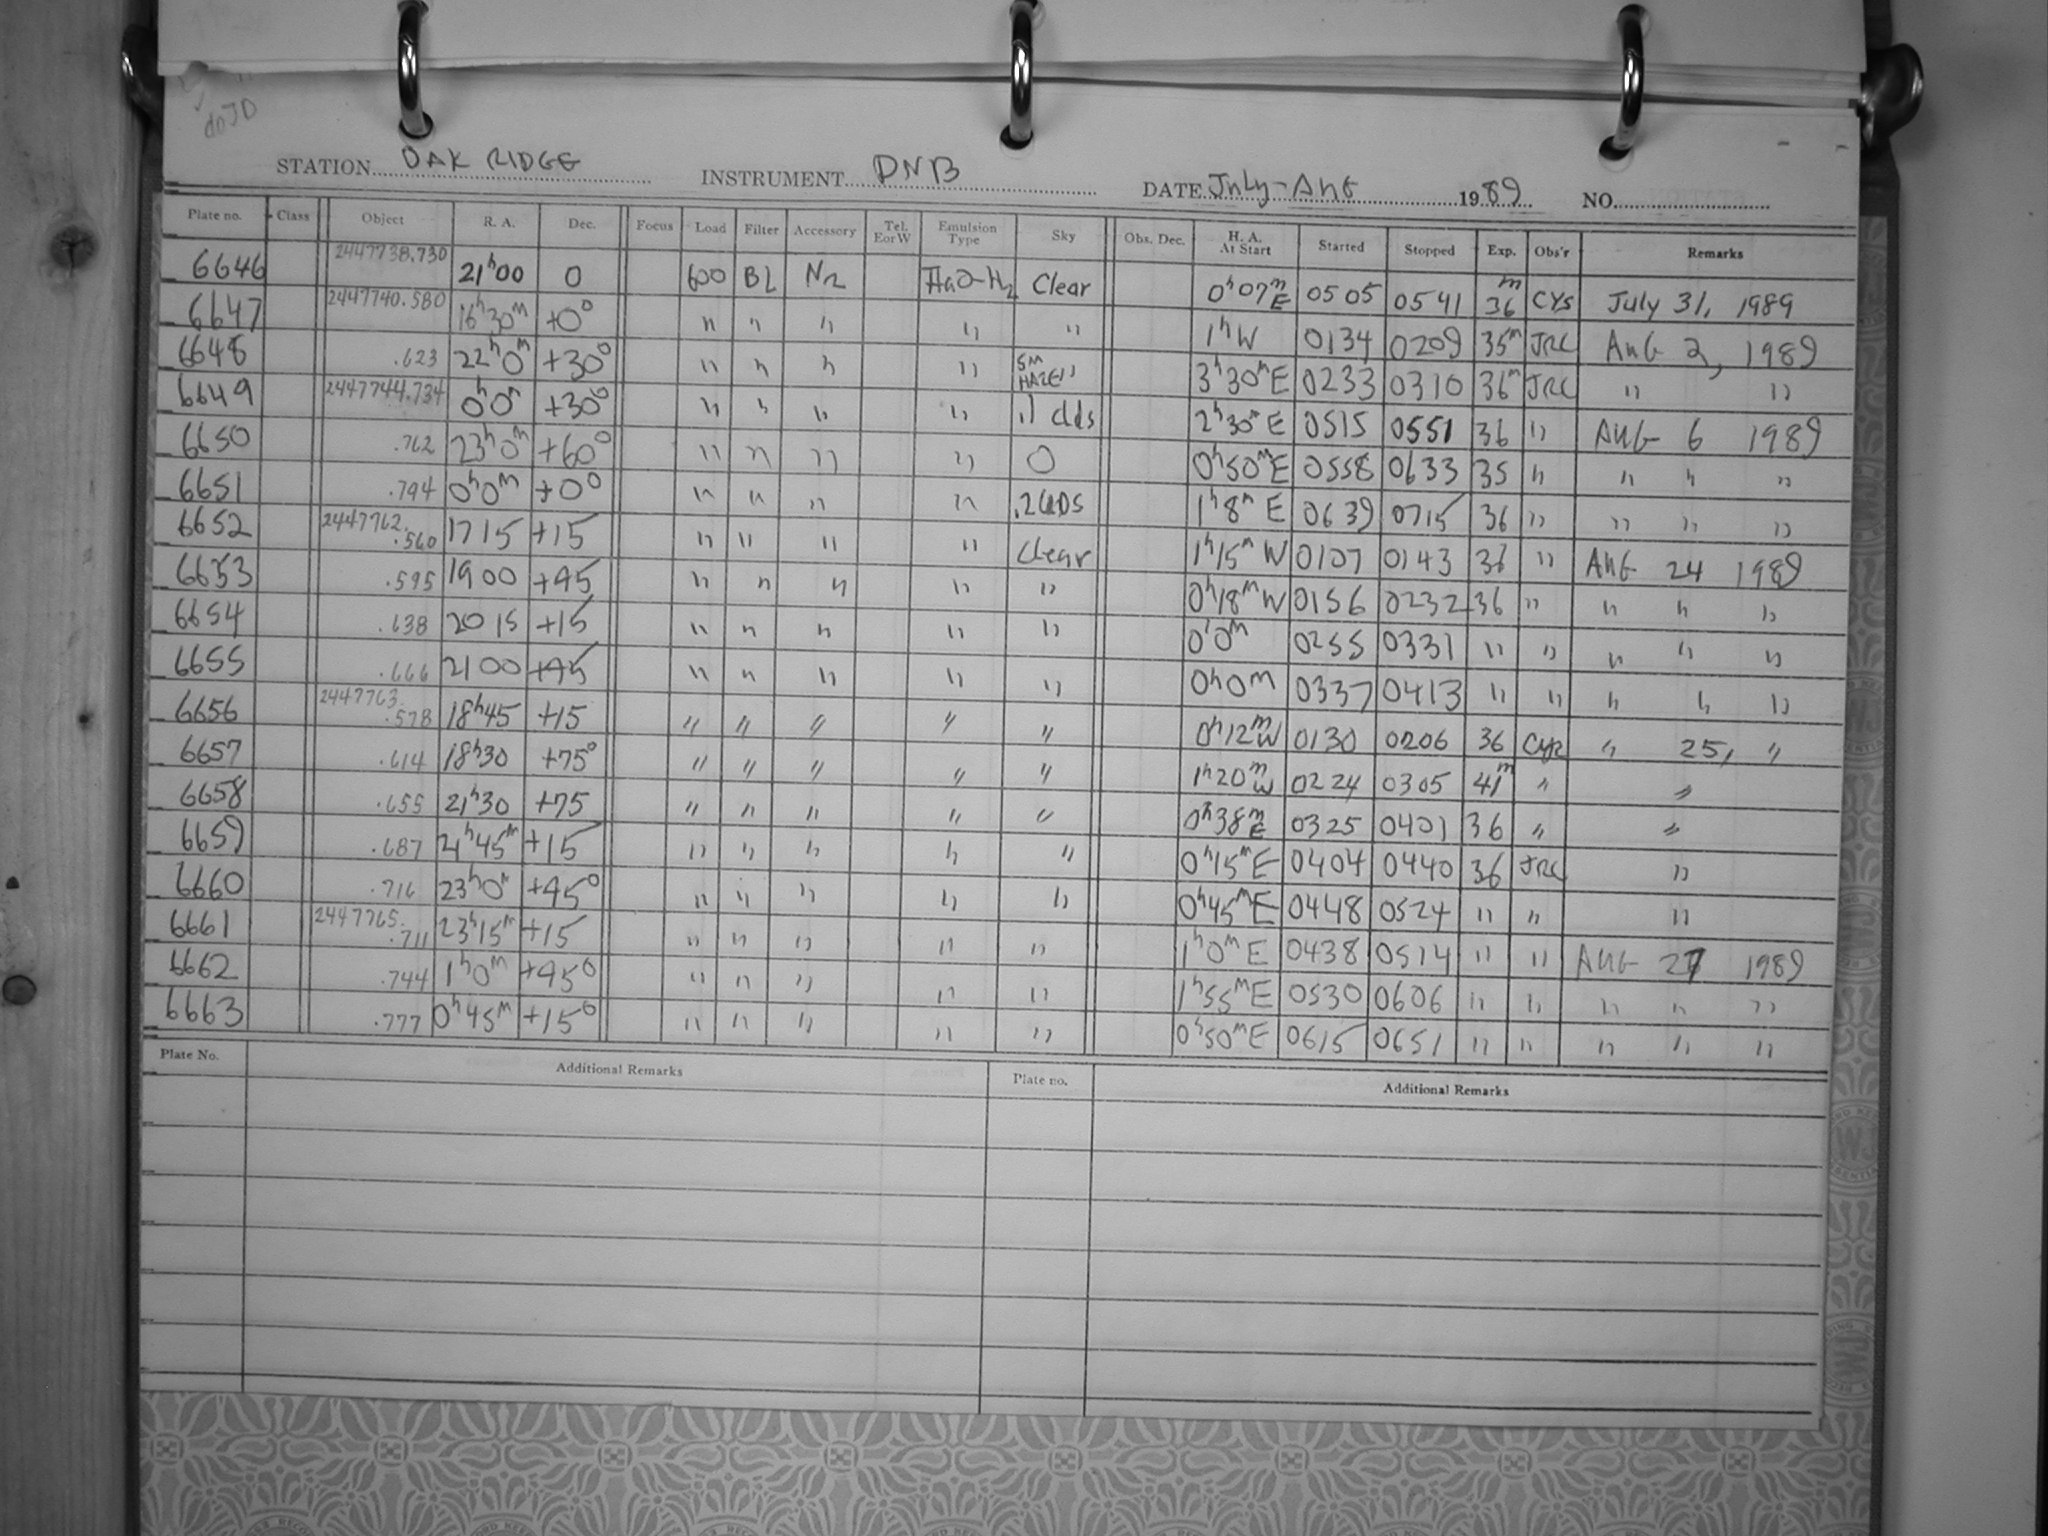 do JD
STATION OAK RIDGE INSTRUMENT DNB DATE July-Aug 1989 NO.
Plate no. Class Object R. A. Dec. Focus Load Filter Accessory Tel. E or W Emulsion Type Sky Obs. Dec. H. A. At Start Started Stopped Exp. Obs'r Remarks
6646 2447738.730 21h00 0 600 BL N2 IIaO-H2 Clear 0h07m E 0505 0541 36m CYS July 31, 1989
6647 2447740.580 16h30m +0° " " " " " 1h W 0134 0209 35m JRC AUG 2, 1989
6648 .623 22h0m +30° " " " " SM HAZE 3h30m E 0233 0310 36m JRC " "
6649 2447744.734 0h0m +30° " " " " .1 clds 2h30m E 0515 0551 36 " AUG 6 1989
6650 .762 23h0m +60° " " " " 0 0h50m E 0558 0633 35 " " " "
6651 .794 0h0m +0° " " " " .2 CLDS 1h8m E 0639 0715 36 " " " "
6652 2447762.560 17 15 +15 " " " " Clear 1h15m W 0107 0143 36 " AUG 24 1989
6653 .595 19 00 +45 " " " " " 0h18m W 0156 0232 36 " " " "
6654 .638 20 15 +15 " " " " " 0h0m 0255 0331 " " " " "
6655 .666 21 00 +45 " " " " " 0h0m 0337 0413 " " " " "
6656 2447763.578 18h45 +15 " " " " " 0h12m W 0130 0206 36 CYR " 25, "
6657 .614 18h30 +75° " " " " " 1h20m W 0224 0305 41m " "
6658 .655 21h30 +75 " " " " " 0h38m E 0325 0401 36 " "
6659 .687 21h45m +15 " " " " " 0h15m E 0404 0440 36 JRC "
6660 .716 23h0m +45° " " " " " 0h45m E 0448 0524 " " "
6661 2447765.711 23h15m +15 " " " " " 1h0m E 0438 0514 " " AUG 27 1989
6662 .744 1h0m +45° " " " " " 1h55m E 0530 0606 " " " " "
6663 .777 0h45m +15° " " " " " 0h50m E 0615 0651 " " " " "
Plate No. Additional Remarks Plate no. Additional Remarks